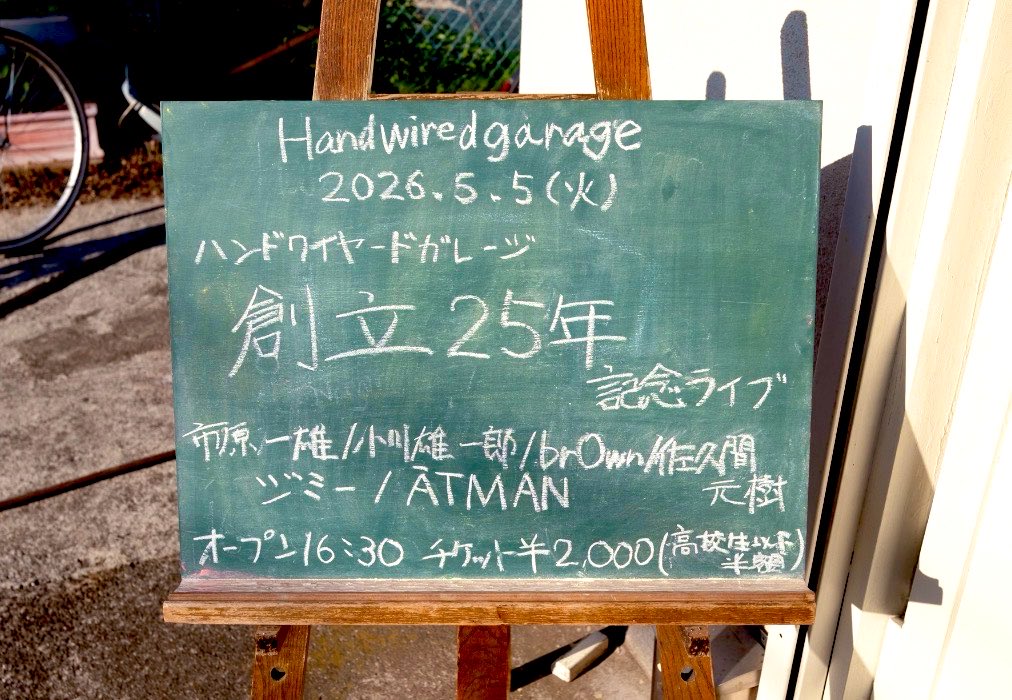 Handwiredgarage
2026.5.5(火)
ハンドワイヤードガレージ
創立25年
記念ライブ
市原一雄/小川雄一郎/brOwn/佐久間
元樹
ジミー/ĀTMAN
オープン16:30 チケット¥2,000(高校生以下
半額)